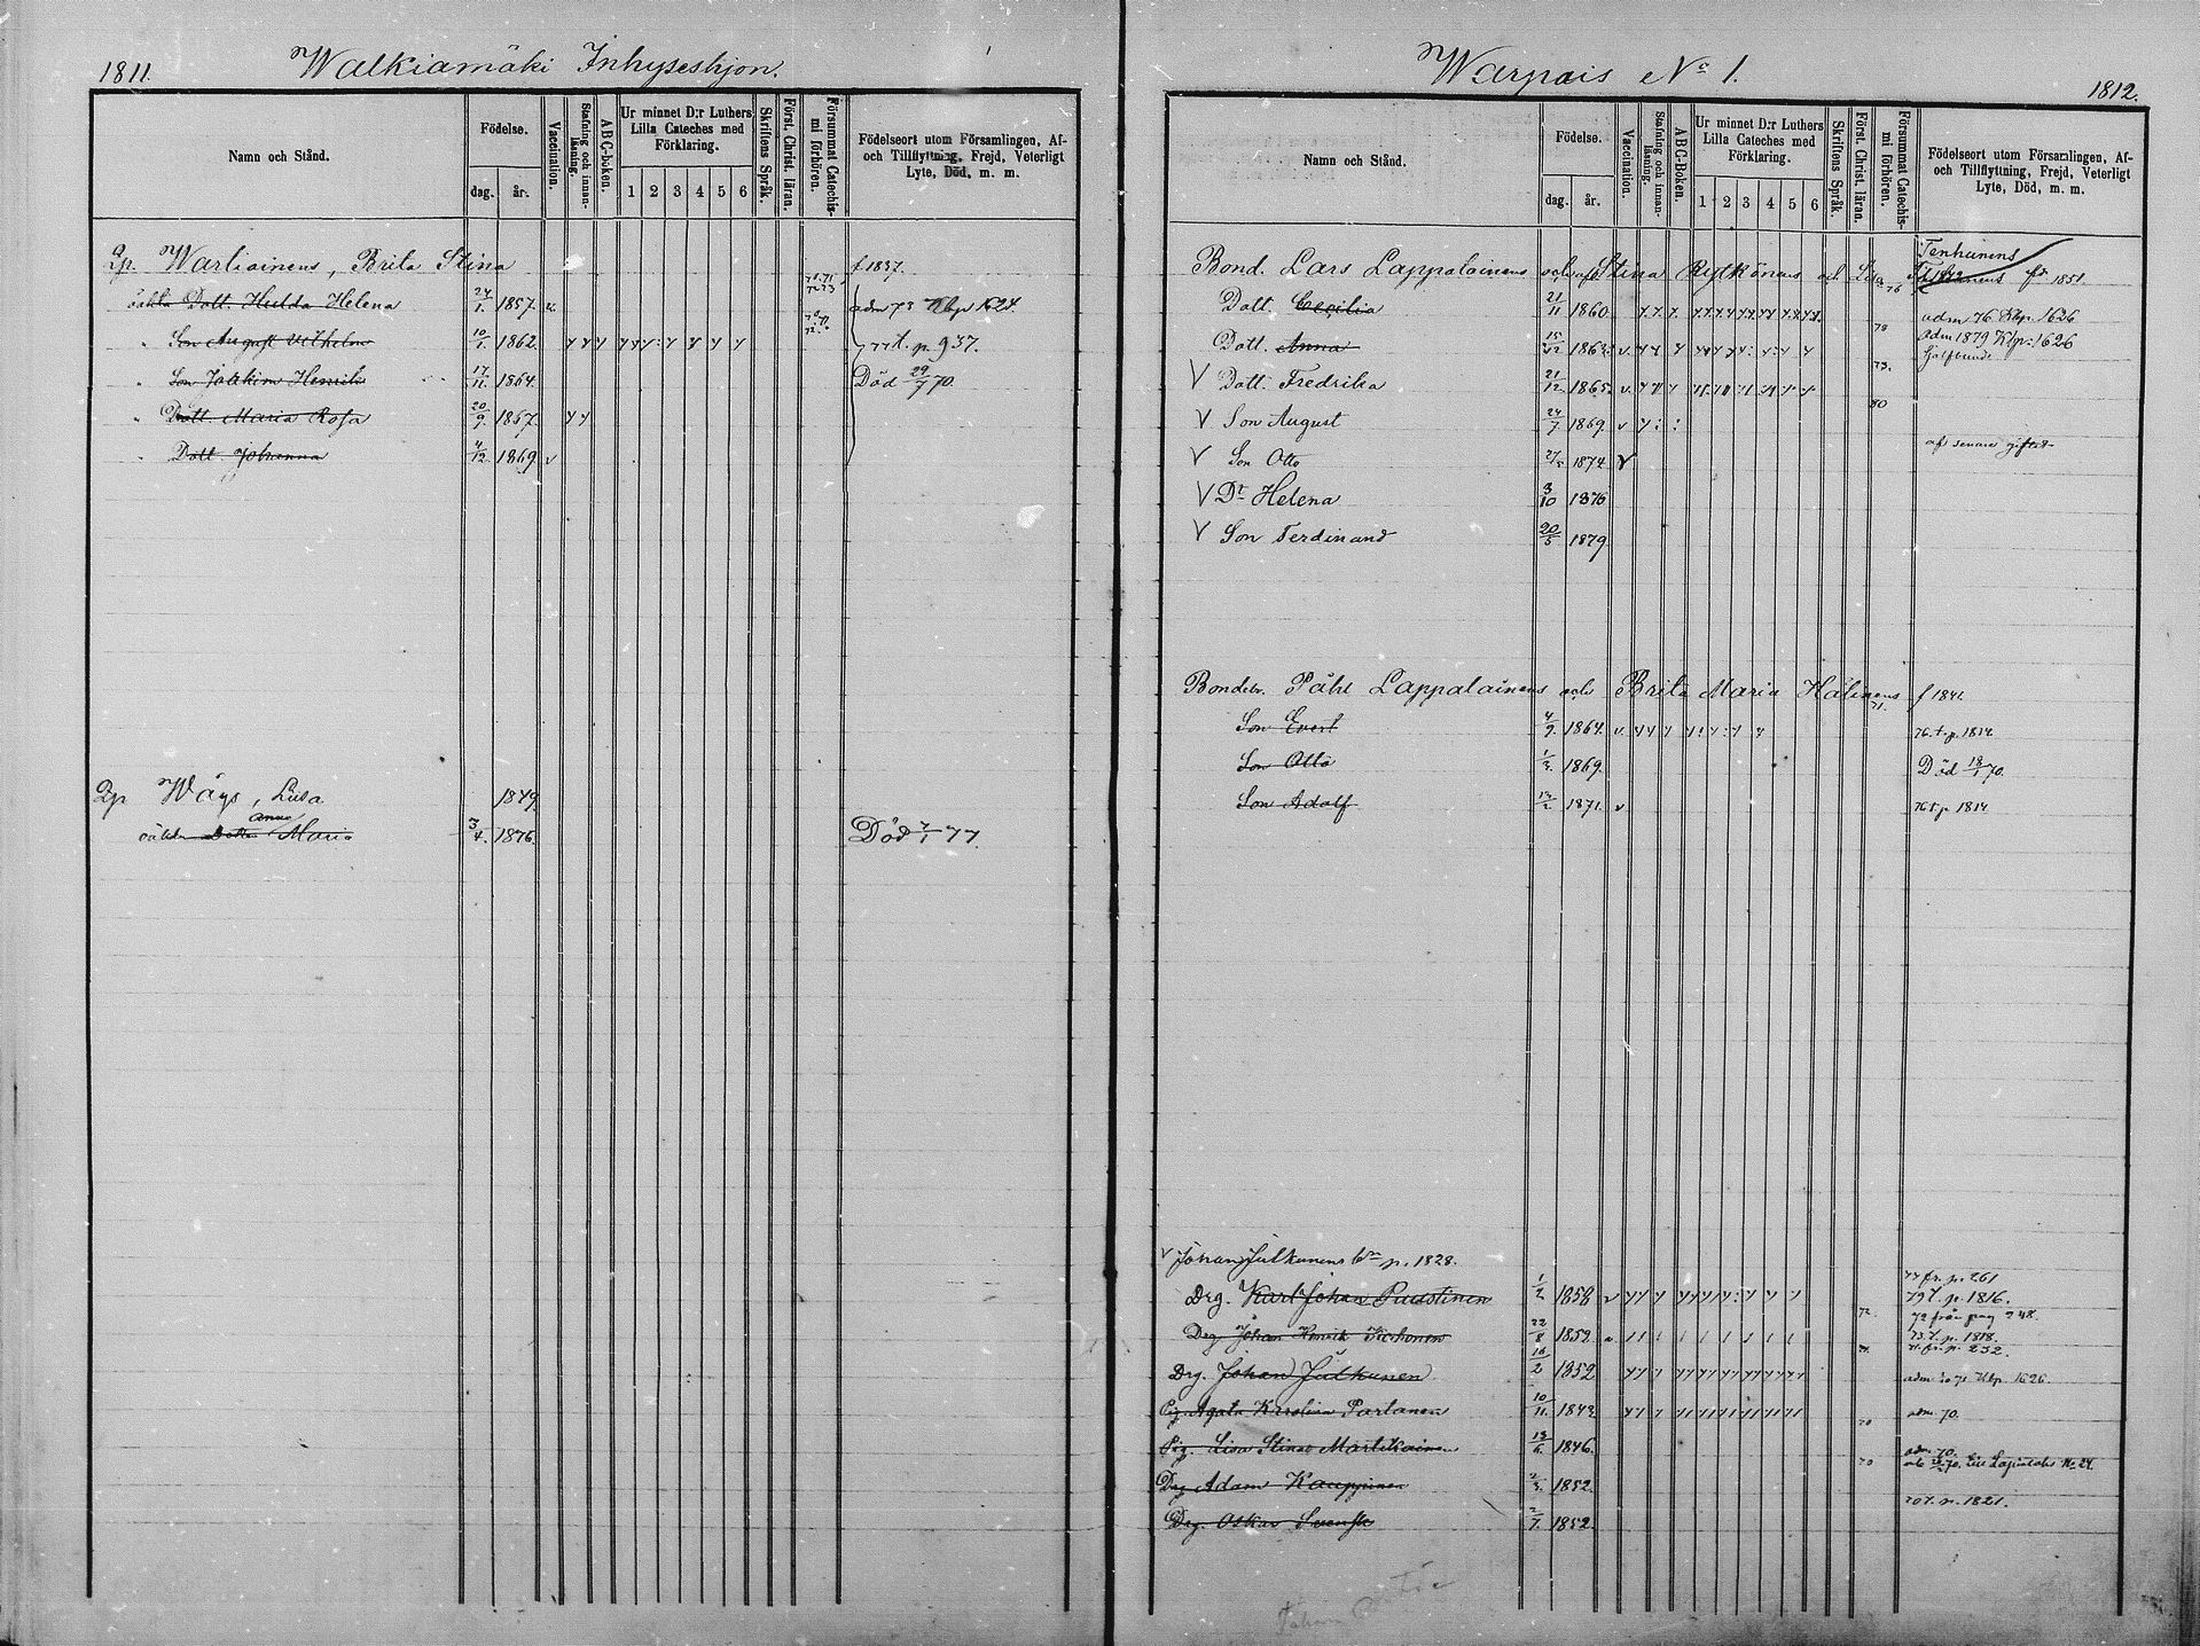 1811.
Walkiamäki Inhyseshjon.
Namn och Stånd.
Födelse.
dag.
år.
Vaccination.
Stafning och innan-läsning.
ABC-boken.
Ur minnet D:r Luthers Lilla Cateches med Förklaring.
1 2 3 4 5 6
Skriftens Språk.
Först. Christ. läran.
Försummat Catechismi förhören.
Födelseort utom Församlingen, Af- och Tillflyttning, Frejd, Veterligt Lyte, Död, m. m.
Qp. Wartiainens, Brita Stina f 1837.
oäkta Dott. Hulda Helena 24/1. 1857. adm 73 Kbp 1624.
" Son August Vilhelm 10/1. 1862. 77 t. p. 937.
" Son Joakim Henrik 17/11. 1864. Död 29/7 70.
" Dott. Maria Rosa 20/9. 1867.
" Dott. Johanna 4/12. 1869 v
Qp Wäys, Lisa 1849.
anna
oäkta Dotter Maria 3/4. 1876. Död 7/1 77.
Warpais No 1.
1812.
Namn och Stånd.
Födelse.
dag.
år.
Vaccination.
Stafning och innan-läsning.
ABC-boken.
Ur minnet D:r Luthers Lilla Cateches med Förklaring.
1 2 3 4 5 6
Skriftens Språk.
Först. Christ. läran.
Försummat Catechismi förhören.
Födelseort utom Församlingen, Af- och Tillflyttning, Frejd, Veterligt Lyte, Död, m. m.
Tenhunens
Bond. Lars Lappalainens och Stina Rytkönens och Lisa fd 1851.
Dott. Cecilia 21/11 1860. adm 76 Kbp. 1626
Dott. Anna 15/12 1863. v. adm 1879 Kbp. 1626
V Dott. Fredrika 21/12. 1865. v.
V Son August 24/7. 1869. v
af senare giftet
V Son Otto 27/5 1874 V
V Dr Helena 3/10 1876
V Son Ferdinand 20/5 1879
Bondebr. Påhl Lappalainens och Brita Maria Hälinens f 1841.
71.
Son Evert 4/9. 1864. v. 76 t. p. 1814
Son Otto 1/3. 1869. Död 18/1 70.
Son Adolf 13/2. 1871. v 76 t p 1814
V Johan Julkunens br p. 1828.
77 fr. p. 261
Drg. Karl Johan Paustinen 1/2 1858 v 79 t. p. 1816.
72. 72 från pag 248.
Drg. Johan Henrik 22/8 1852. 73 t. p. 1818.
71. fr. p. 252.
Drg. Johan Julkunen 16/2 1852 adm Kbp. 1626.
Pig. Agata Karolina Partanen 10/11. 1843 adm. 70.
70
Pig. Lisa Stina Martikainen 13/6. 1846. adm. 70.
70
Drg. Adam Kauppinen 2/3. 1852.
70 t. p. 1821.
Drg. Oskar Svensk 2/7. 1852.
Johan